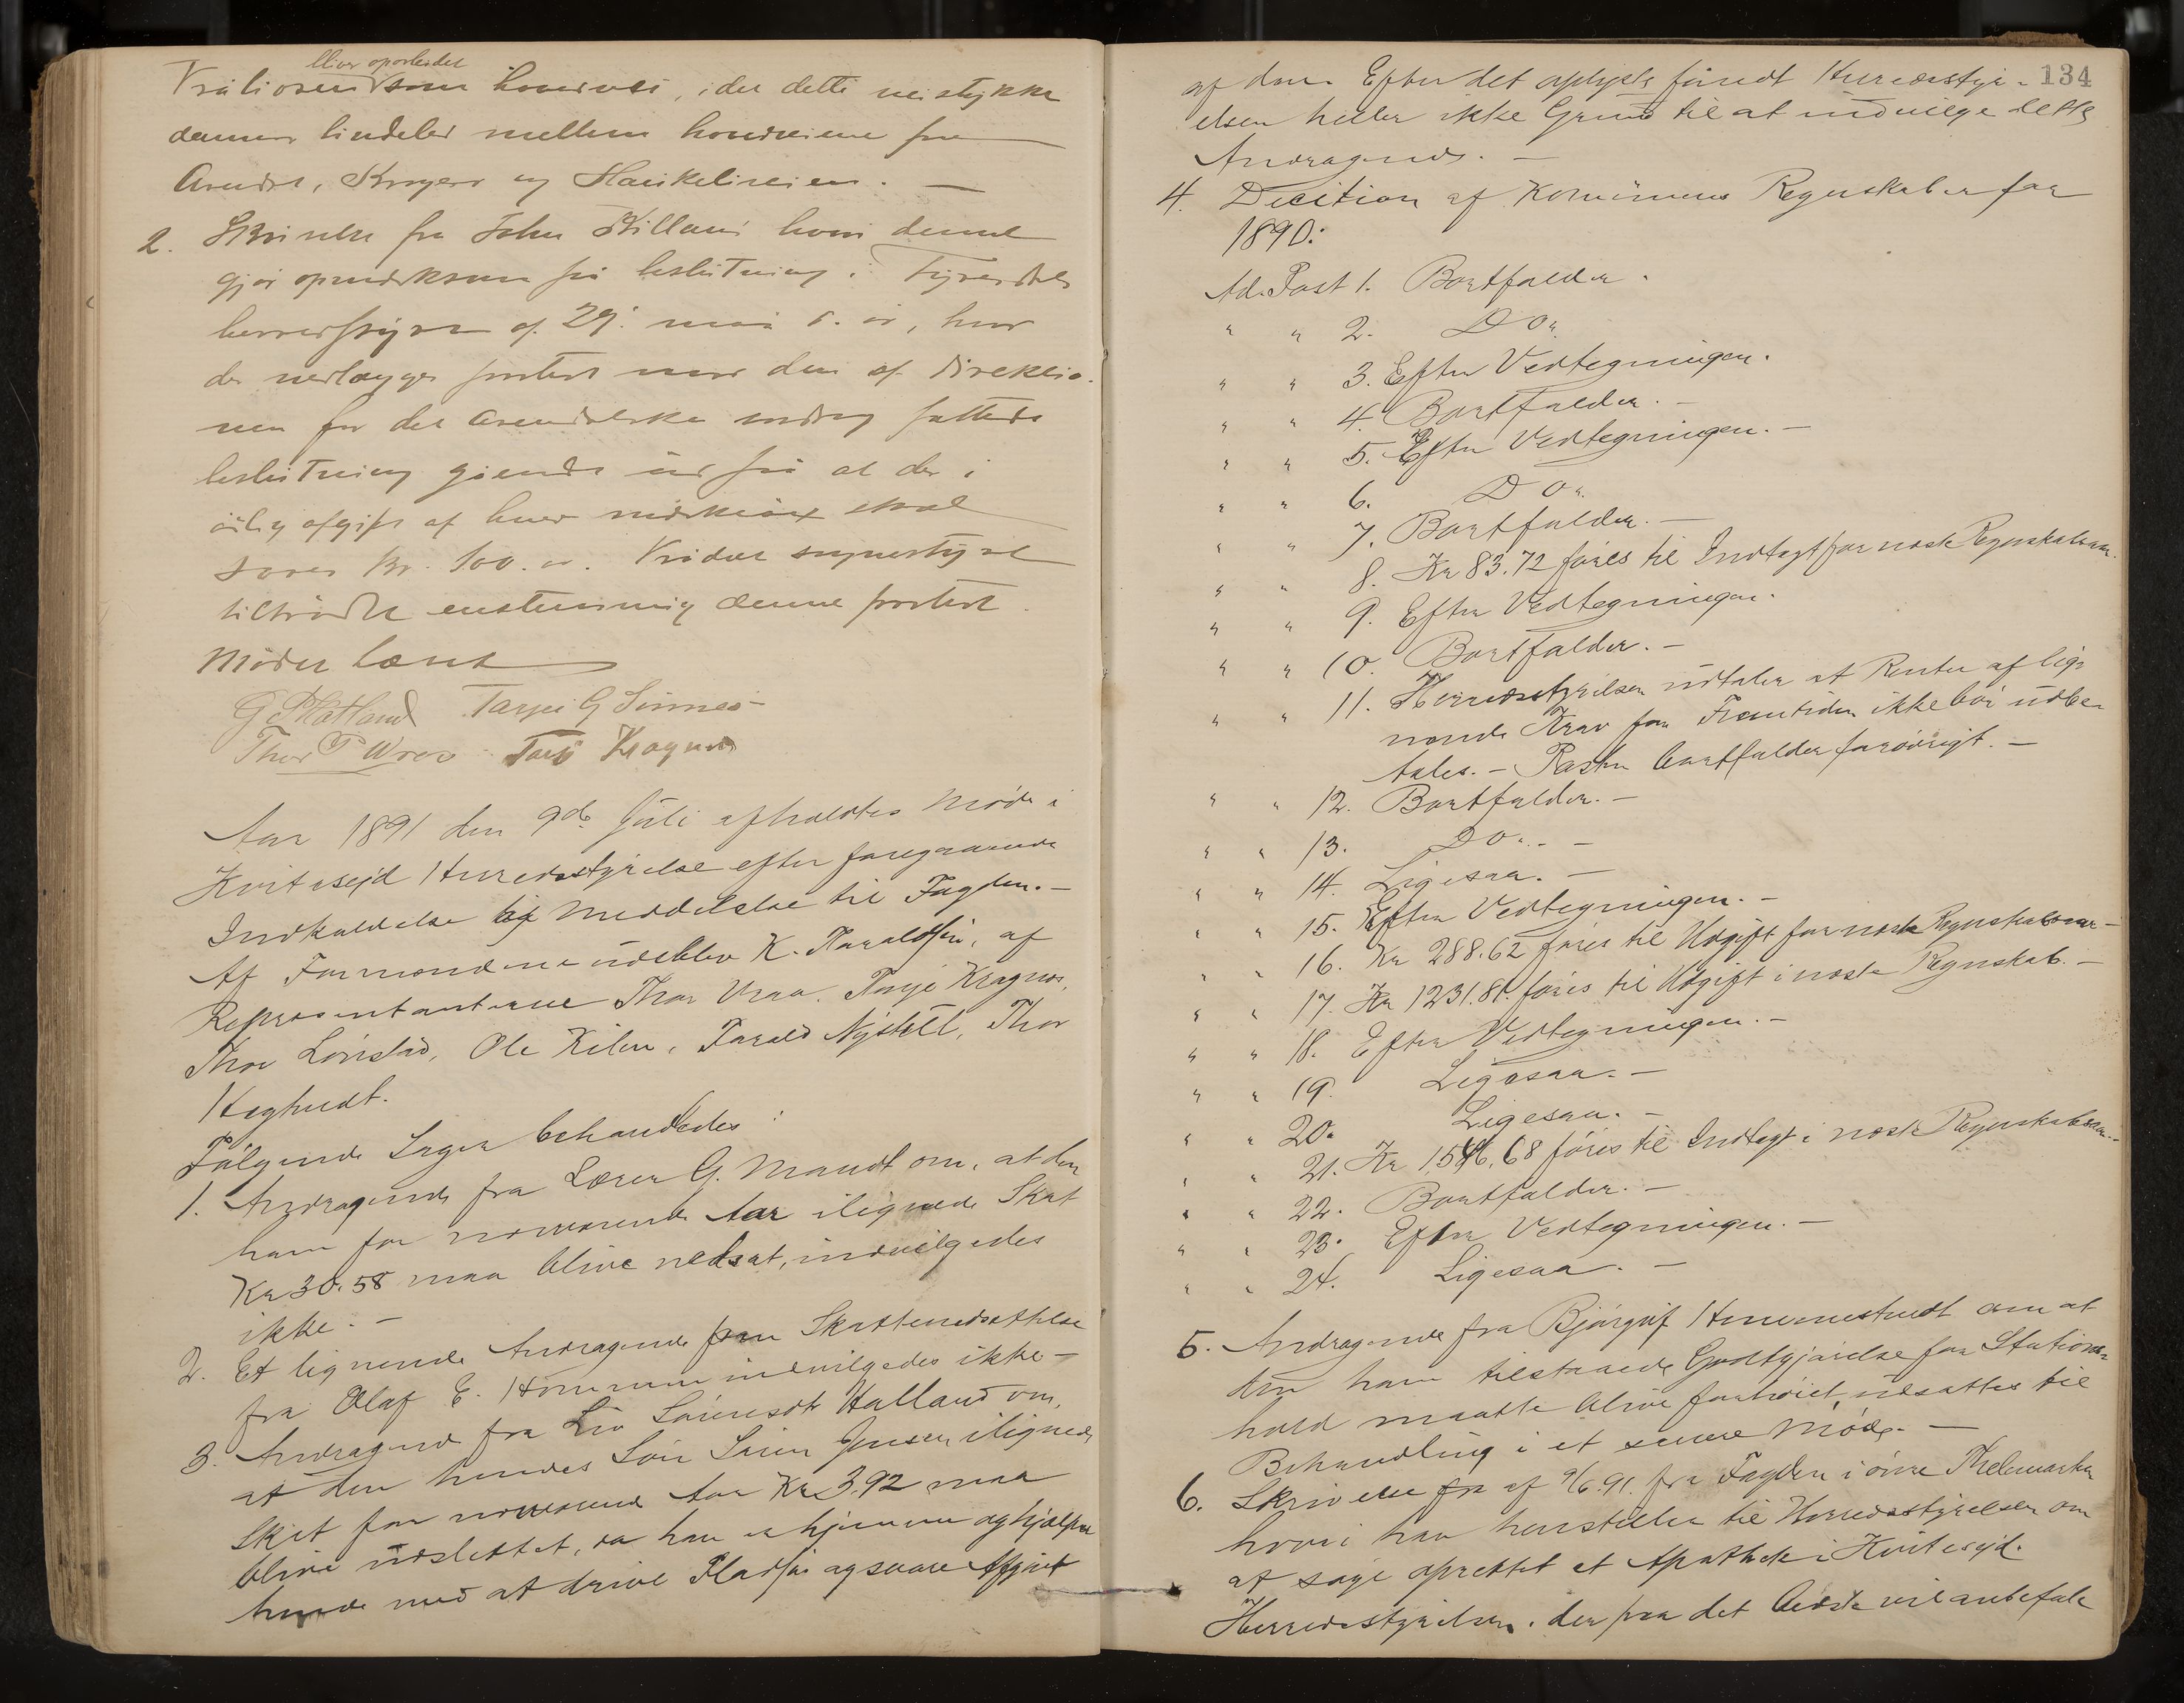 bliver oparbeidet
som hovedvei, idet dette veistykke
danner bindeled mellem hovedveiene fra
Arendal, Kragerø og Haukeliveien. —
2. Skrivelse fra John hvori denne
gjør opmerksom på beslutning i
herredstyre af 29. mai d. år, hvor
der nedlægges protest mod den af direktio-
nen for det Arendalske fattede
beslutning gående ud på at der i
årlig afgift af hver skal
svares Kr. 100.00.
tiltrådte enstemmig denne protest.
Mødet hævet
G Hatland Tarjei G Sinnes
Thor P Wraa Tarje Kragnes
Aar 1891 den 9de Juli afholdtes Møde i
Kvitesejd Herredsstyrelse efter foregaaende
Indkaldelse og Meddelelse til Fogden. —
Af Formændene udeblev K. Haraldsen, af
Repræsentanterne Thor Vraa, Tarje Kragnes,
Thor Lønstad, Ole Kilen, Harald Nystøl, Thor
Heghvedt.
Følgende Sager behandledes:
1. Andragende fra Lærer G. Mandt om, at den
ham for nærværende Aar ilignede Skat
Kr 30.58 maa blive nedsat, indvilgedes
ikke. —
2. Et lignende Andragende om Skattenedsættelse
fra Olaf E. Hommum indvilgedes ikke —
3. Andragende fra Liv Sørensdtr Halland om,
at den hendes Søn Søren Jensen ilignede
Skat for nærværende Aar Kr 3.92 maa
blive udslettet, da han er hjemme og hjælper
hende med at drive Pladsen og svare Afgift
134
af den. Efter det oplyste fandt Herredsstyr-
elsen heller ikke Grund til at indvilge dette
Andragende. —
4. Decition af Kommunens Regnskaber for
1890:
Ad. Post 1. Bortfalder.
" " 2. Do.
" " 3. Efter Vedtegningen.
" " 4. Bortfalder. —
" " 5. Efter Vedtegningen. —
" " 6. Do.
" " 7. Bortfalder. —
" " 8. Kr 83.72 føres til Indtægt for næste Regnskabsaar.
" " 9. Efter Vedtegningen.
" " 10. Bortfalder. —
" " 11. Herredsstyrelsen udtaler at Renter af lig-
nende Krav for Fremtiden ikke bør udbe-
tales. — Posten bortfalder forøvrigt. —
" " 12. Bortfalder. —
" " 13. Do. —
" " 14. Ligesaa. —
" " 15. Efter Vedtegningen. —
" " 16. Kr 288.62 føres til Udgift for næste Regnskabsaar —
" " 17. Kr 1231.81 føres til Udgift i næste Regnskab. —
" " 18. Efter Vedtegningen. —
" " 19. Ligesaa. —
" " 20. Ligesaa. —
" " 21. Kr 1,546.68 føres til Indtægt i næste Regnskabsaar. —
" " 22. Bortfalder. —
" " 23. Efter Vedtegningen. —
" " 24. Ligesaa. —
5. Andragende fra Bjørgulf Hemmestvedt om at
den ham tilstaaede Godtgjørelse for Stations-
hold maatte blive forhøiet, udsattes til
Behandling i et senere Møde. —
6. Skrivelse af 9/6.91. fra Fogden i øvre Thelemarken
hvori han henstiller til Herredsstyrelsen om
at søge oprettet et Apothek i Kvitesejd.
Herredsstyrelsen, der paa det bedste vil anbefale